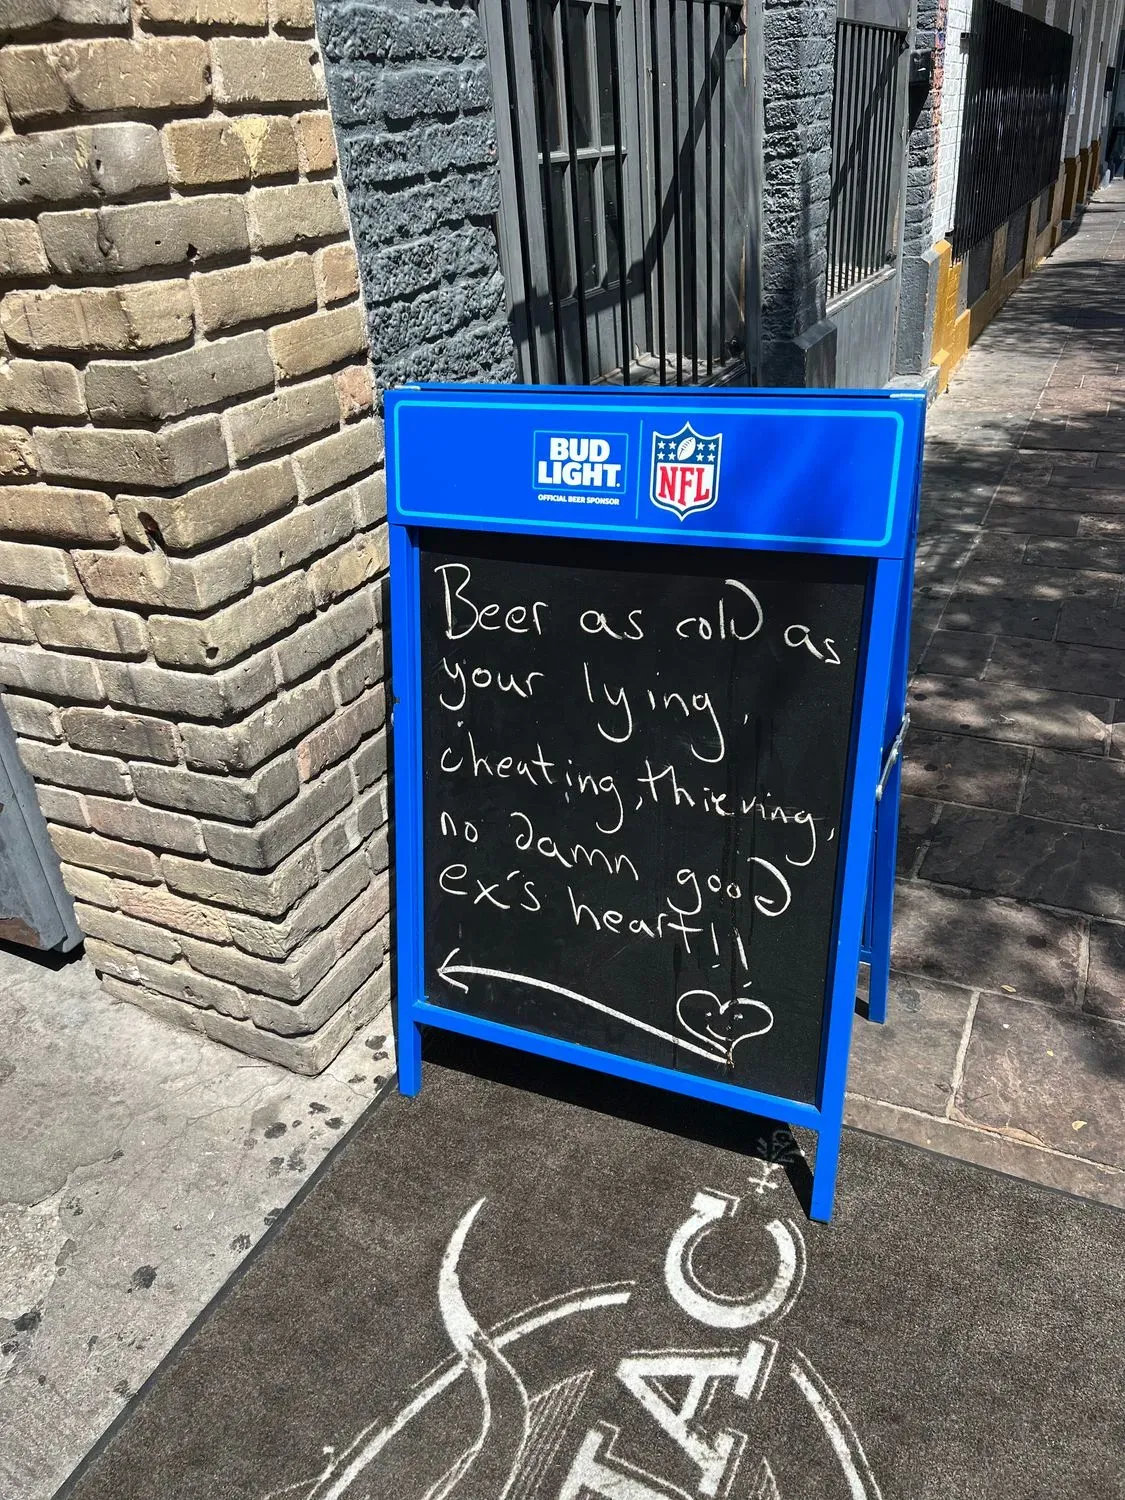 BUD
LIGHT.
OFFICIAL BEER SPONSOR
NFL
Beer as cold as
your lying,
cheating, thieving,
no damn good
ex's heart!!